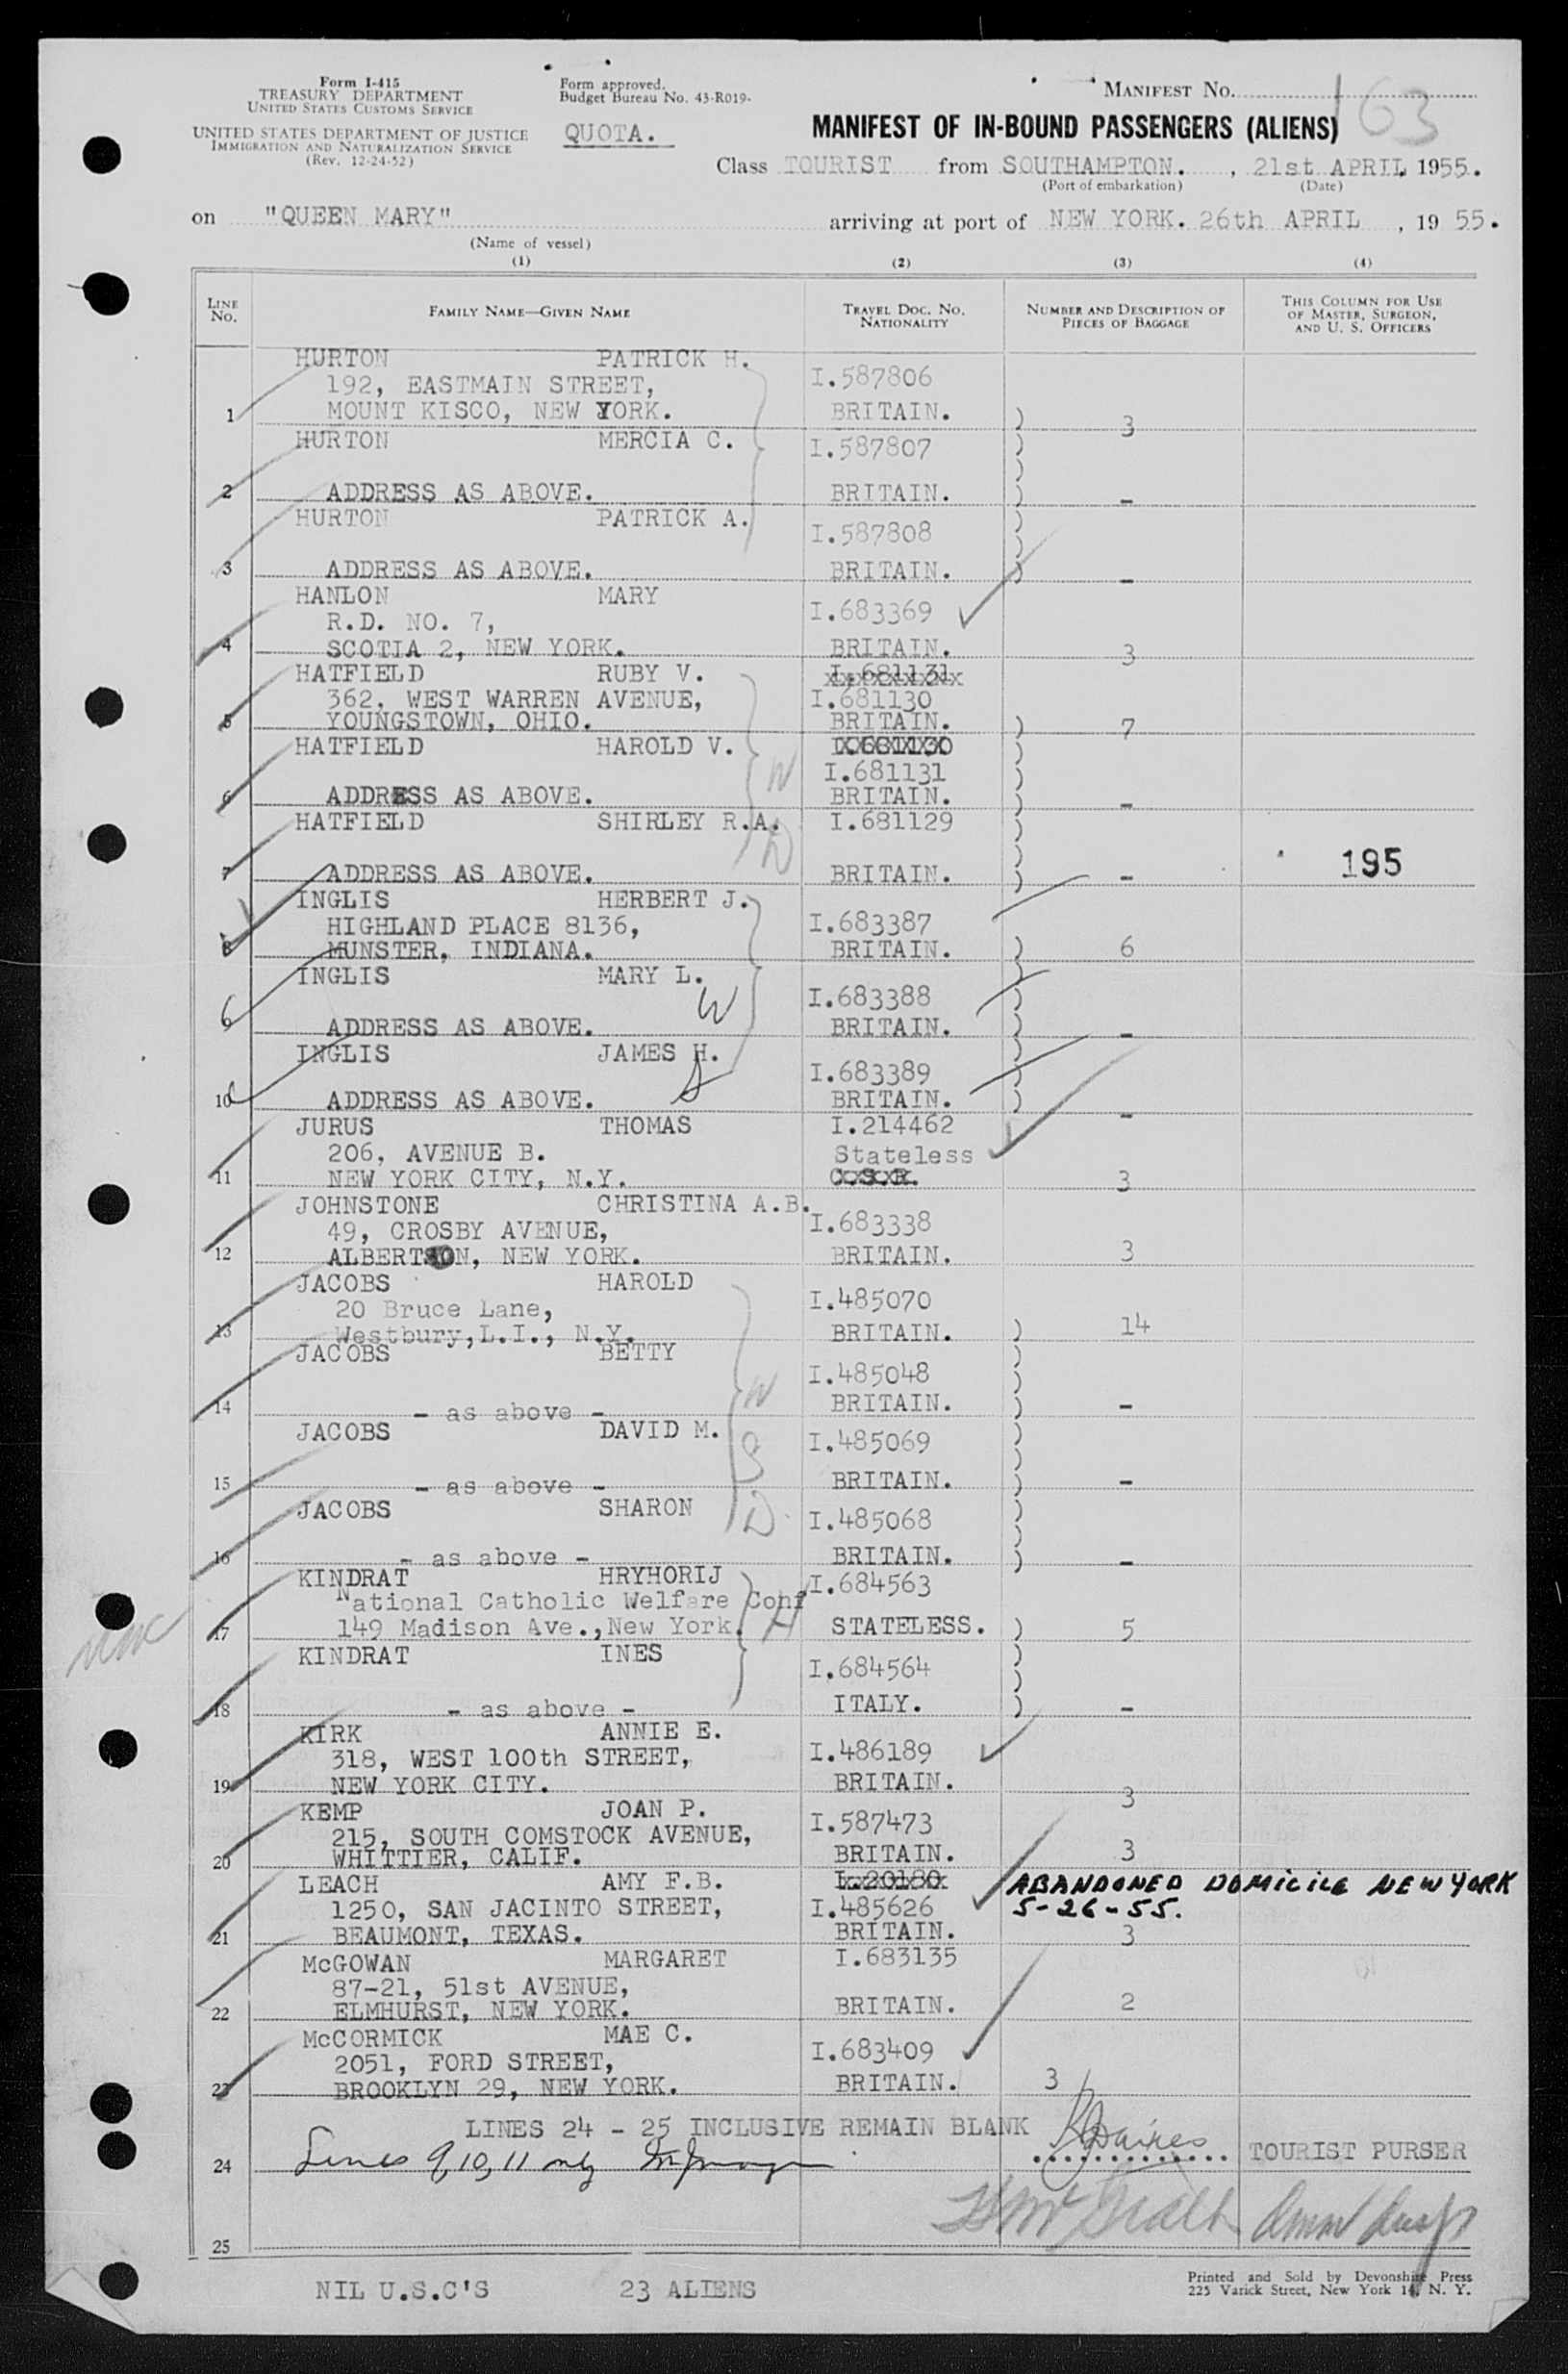 Form I-415
TREASURY DEPARTMENT
UNITED STATES CUSTOMS SERVICE
UNITED STATES DEPARTMENT OF JUSTICE
IMMIGRATION AND NATURALIZATION SERVICE
(Rev. 12-24-52)
Form approved.
Budget Bureau No. 43-R019-
QUOTA.
MANIFEST NO. 163
MANIFEST OF IN-BOUND PASSENGERS (ALIENS)
Class TOURIST from SOUTHAMPTON. , 21st APRIL, 1955.
(Port of embarkation) (Date)
on "QUEEN MARY" arriving at port of NEW YORK. 26th APRIL , 19 55.
(Name of vessel)
(1) (2) (3) (4)
LINE No. FAMILY NAME—GIVEN NAME TRAVEL DOC. NO. NATIONALITY NUMBER AND DESCRIPTION OF PIECES OF BAGGAGE THIS COLUMN FOR USE OF MASTER, SURGEON, AND U. S. OFFICERS
HURTON PATRICK H.
192, EASTMAIN STREET, I.587806
1 MOUNT KISCO, NEW YORK. BRITAIN. ) 3
HURTON MERCIA C. I.587807
2 ADDRESS AS ABOVE. BRITAIN. ) -
HURTON PATRICK A. I.587808
3 ADDRESS AS ABOVE. BRITAIN. ) -
HANLON MARY
R.D. NO. 7, I.683369
4 SCOTIA 2, NEW YORK. BRITAIN. 3
HATFIELD RUBY V. I.681131
362, WEST WARREN AVENUE, I.681130
5 YOUNGSTOWN, OHIO. BRITAIN. ) 7
HATFIELD HAROLD V. I.681130
I.681131
W
6 ADDRESS AS ABOVE. BRITAIN. ) -
HATFIELD SHIRLEY R.A. I.681129
D
7 ADDRESS AS ABOVE. BRITAIN. ) - 195
INGLIS HERBERT J.
HIGHLAND PLACE 8136, I.683387
8 MUNSTER, INDIANA. BRITAIN. ) 6
INGLIS MARY L. I.683388
W
9 ADDRESS AS ABOVE. BRITAIN. ) -
INGLIS JAMES H. I.683389
S
10 ADDRESS AS ABOVE. BRITAIN. ) -
JURUS THOMAS I.214462
206, AVENUE B. Stateless
11 NEW YORK CITY, N.Y. 3
JOHNSTONE CHRISTINA A.B.
49, CROSBY AVENUE, I.683338
12 ALBERTSON, NEW YORK. BRITAIN. 3
JACOBS HAROLD
20 Bruce Lane, I.485070
13 Westbury,L.I., N.Y. BRITAIN. ) 14
JACOBS BETTY I.485048
W
14 - as above - BRITAIN. ) -
JACOBS DAVID M. I.485069
S
15 - as above - BRITAIN. ) -
JACOBS SHARON I.485068
D
16 - as above - BRITAIN. ) -
KINDRAT HRYHORIJ I.684563
National Catholic Welfare Conf
H
17 149 Madison Ave.,New York. STATELESS. ) 5
KINDRAT INES I.684564
18 - as above - ITALY. ) -
KIRK ANNIE E.
318, WEST 100th STREET, I.486189
19 NEW YORK CITY. BRITAIN. 3
KEMP JOAN P.
215, SOUTH COMSTOCK AVENUE, I.587473
20 WHITTIER, CALIF. BRITAIN. 3
LEACH AMY F.B. I.20180 ABANDONED DOMICILE NEW YORK
1250, SAN JACINTO STREET, I.485626 5-26-55.
21 BEAUMONT, TEXAS. BRITAIN. 3
McGOWAN MARGARET I.683135
87-21, 51st AVENUE,
22 ELMHURST, NEW YORK. BRITAIN. 2
McCORMICK MAE C.
2051, FORD STREET, I.683409
23 BROOKLYN 29, NEW YORK. BRITAIN. 3
LINES 24 - 25 INCLUSIVE REMAIN BLANK
24 Lines 9,10,11 only TOURIST PURSER
25
NIL U.S.C'S 23 ALIENS
Printed and Sold by Devonshire Press
225 Varick Street, New York 14, N. Y.